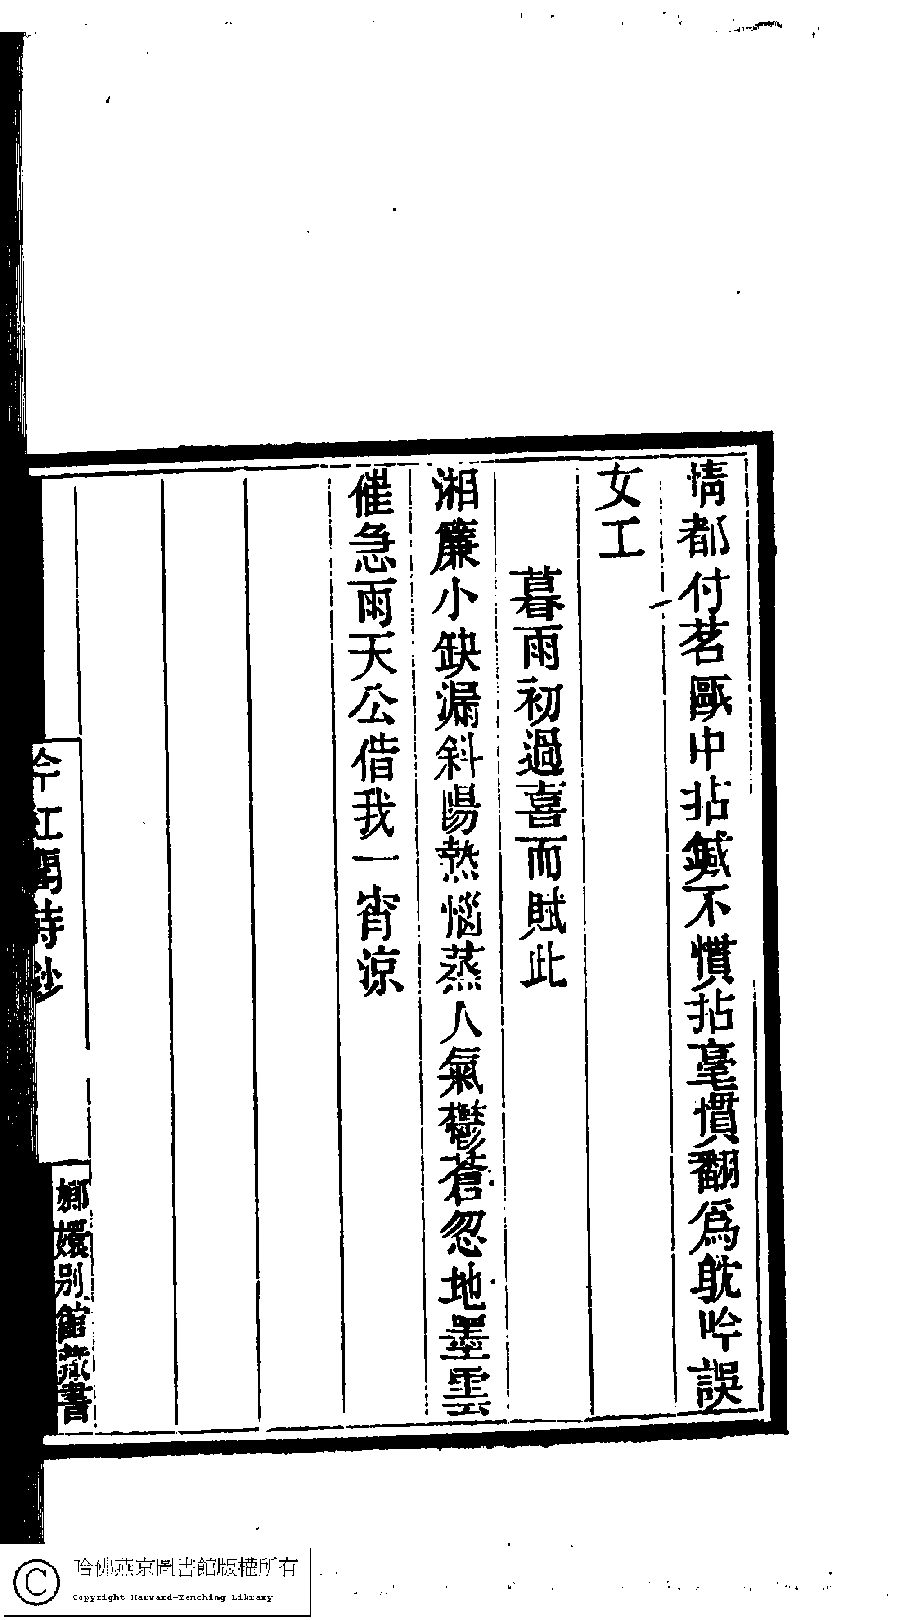 情都付茗甌中拈鍼不慣拈毫慣翻爲耽吟誤
女工
暮雨初過喜而賦此
湘簾小缺漏斜陽熱惱蒸人氣鬱蒼忽地墨雲
催急雨天公借我一宵涼
吟紅閣詩鈔
嫏嬛別館藏書
哈佛燕京圖書館版權所有
Copyright Harvard-Yenching Library